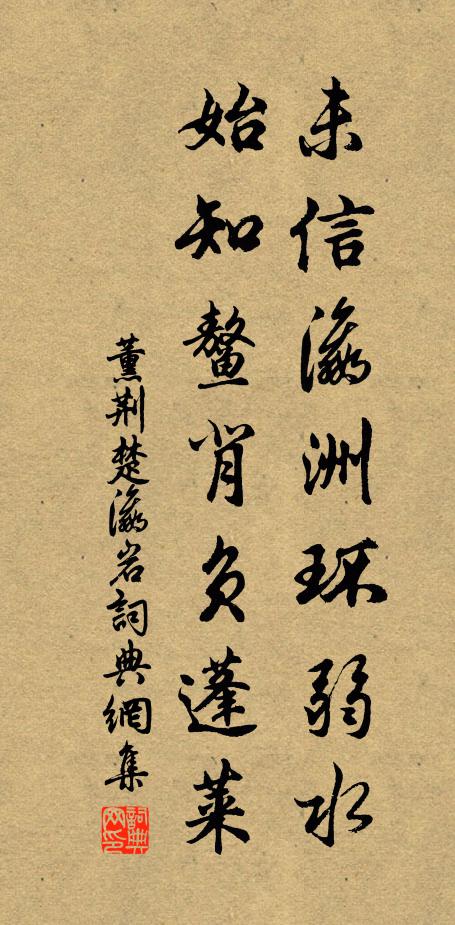 未信瀛洲环弱水
始知鳌背负蓬莱
薰荆楚瀛岩詞典網集
詞典
网印